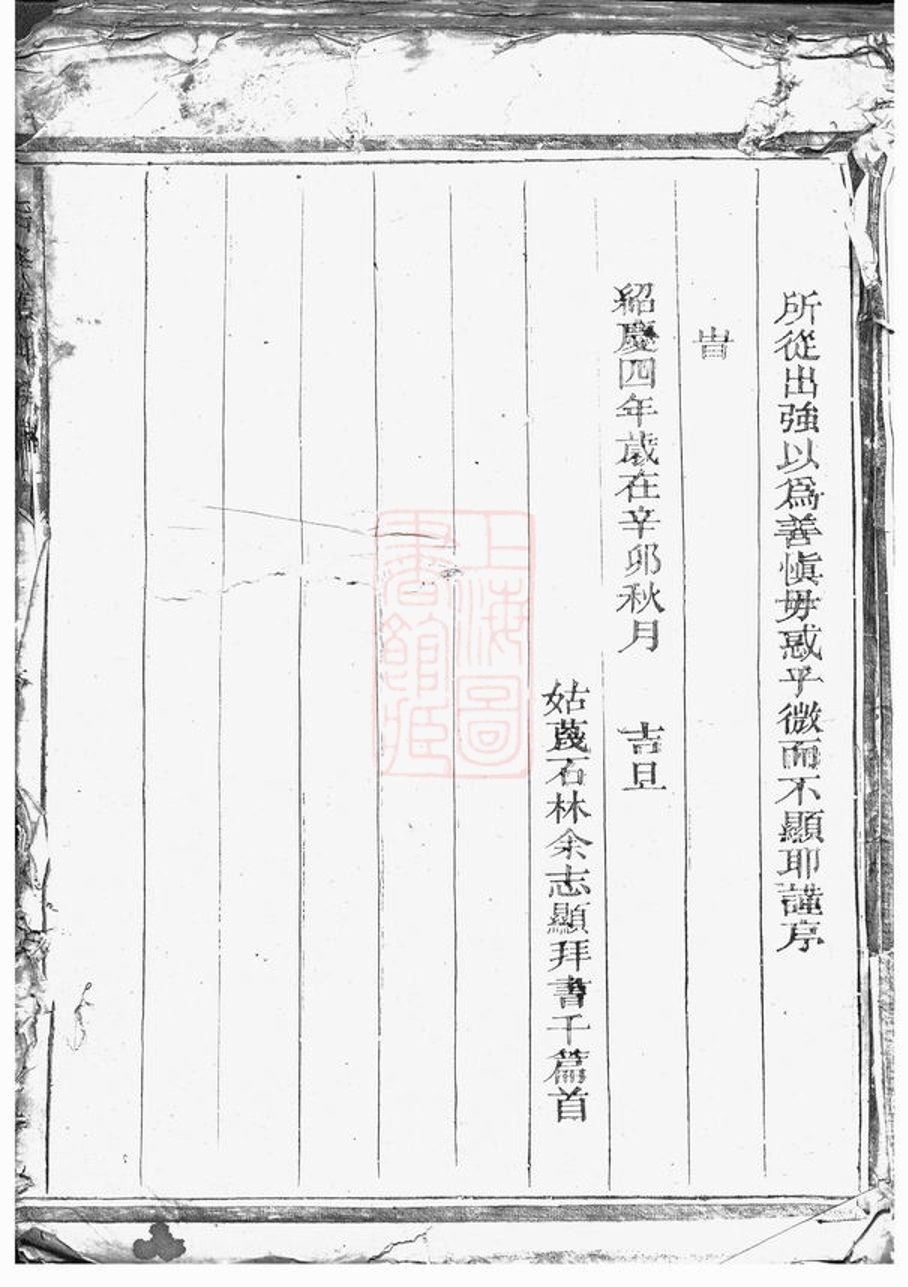 所從出強以爲善愼毋惑乎微而不顯耶謹序
旹
紹慶四年歲在辛卯秋月　吉旦
姑蔑石林余志顯拜書于篇首
上海圖書館藏